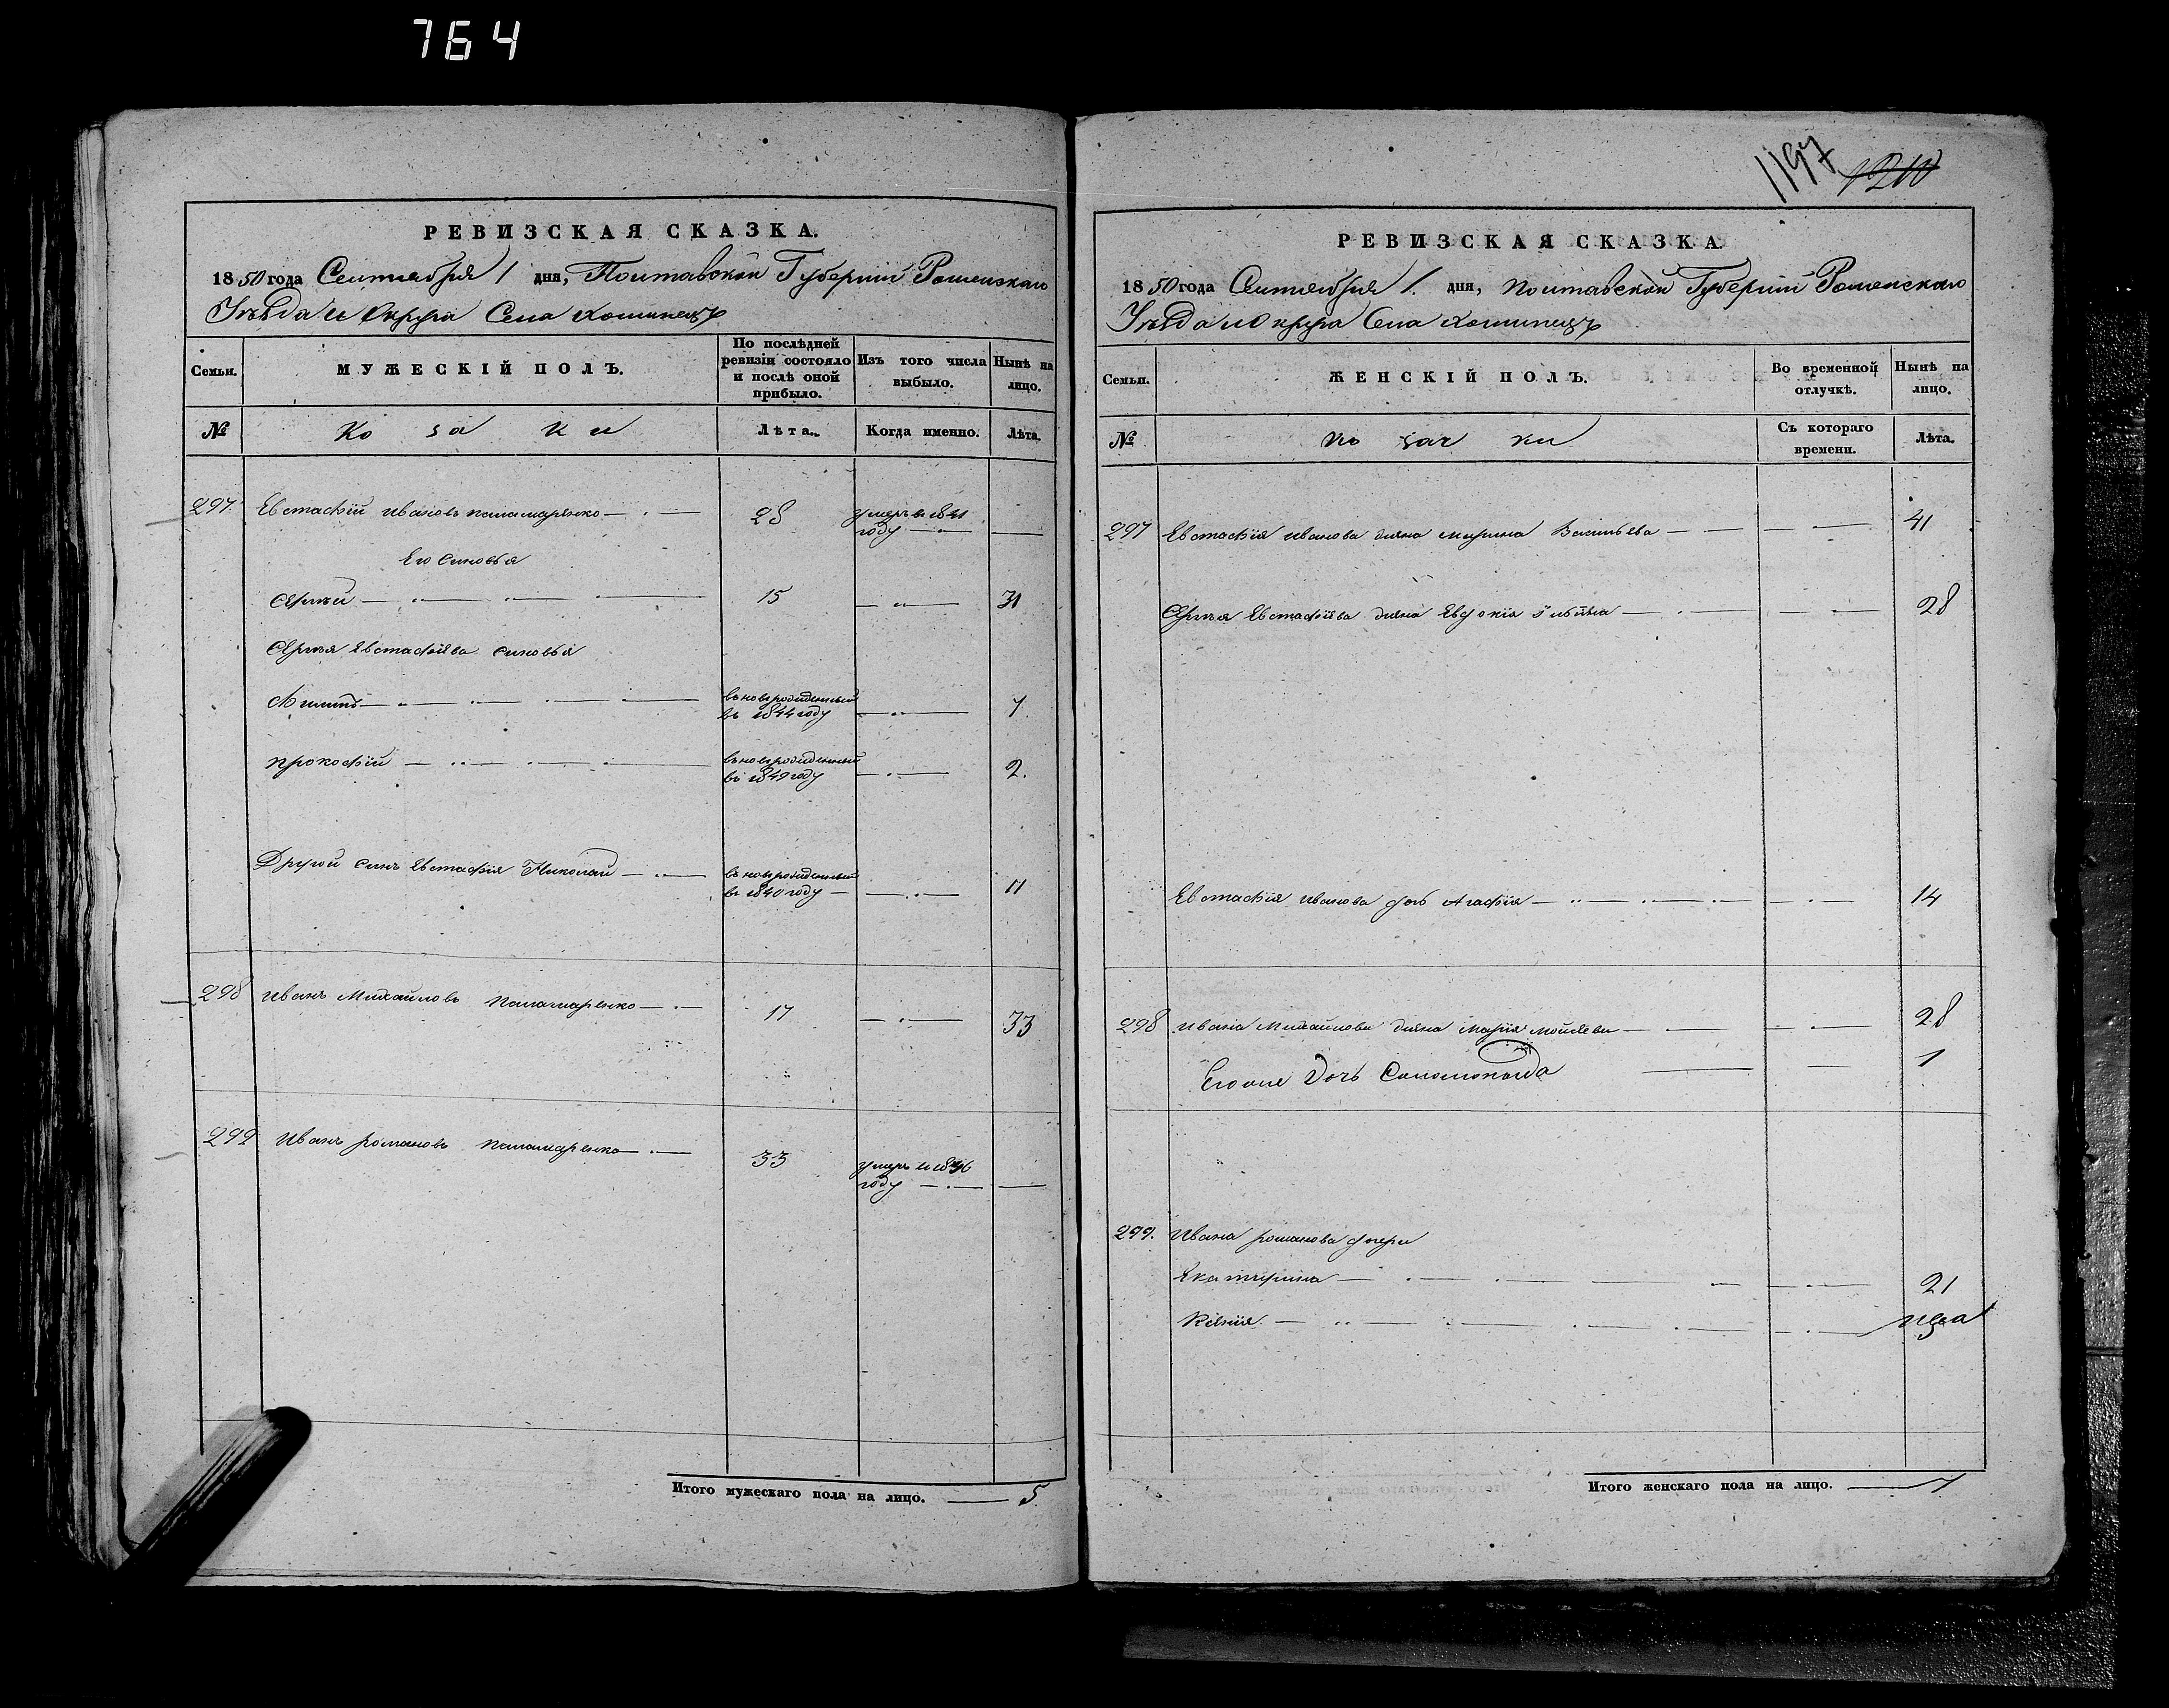 764
РЕВИЗСКАЯ СКАЗКА.
1850 года Сентября 1 дня, Полтавской Губернии Роменскаго
Уезда и Округа Села
Семьи.
МУЖЕСКІЙ ПОЛЪ.
По послѣдней ревизіи состояло и послѣ оной прибыло.
Изъ того числа выбыло.
Нынѣ на лицо.
№
Козаки
Лѣта.
Когда именно.
Лѣта.
297. Евстафій Ивановъ Паламаренко 28 умеръ в 1841 году
Его Сыновья
Сергѣй 15 31
Сергѣя Евстафіева сыновья
вновьрожденный въ 1844 году 7.
Прокофій вновьрожденный въ 1849 году 2.
Другой сынъ Евстафія Николай вновьрожденный въ 1840 году 11
298 Иванъ Михайловъ Паламаренко 17 33
299 Иванъ Романовъ Паламаренко 33 умеръ в 1836 году
Итого мужескаго пола на лицо. 5
1197 1210
РЕВИЗСКАЯ СКАЗКА.
1850 года Сентября 1. дня, Полтавской Губернии Роменскаго
Уезда и Округа Села
Семьи.
ЖЕНСКІЙ ПОЛЪ.
Во временной отлучкѣ.
Нынѣ на лицо.
№
Козачки
Съ котораго времени.
Лѣта.
297 Евстафія Иванова жена Марина Васильева 41
Сергѣя Евстафіева жена Евдокія 28
Евстафія Иванова дочь Агафія 14
298 Ивана Михайлова жена Марія 28
Его дочь Соломонида 1
299. Ивана Романова дочери
Екатерина 21
Ксенія
Итого женскаго пола на лицо. 7